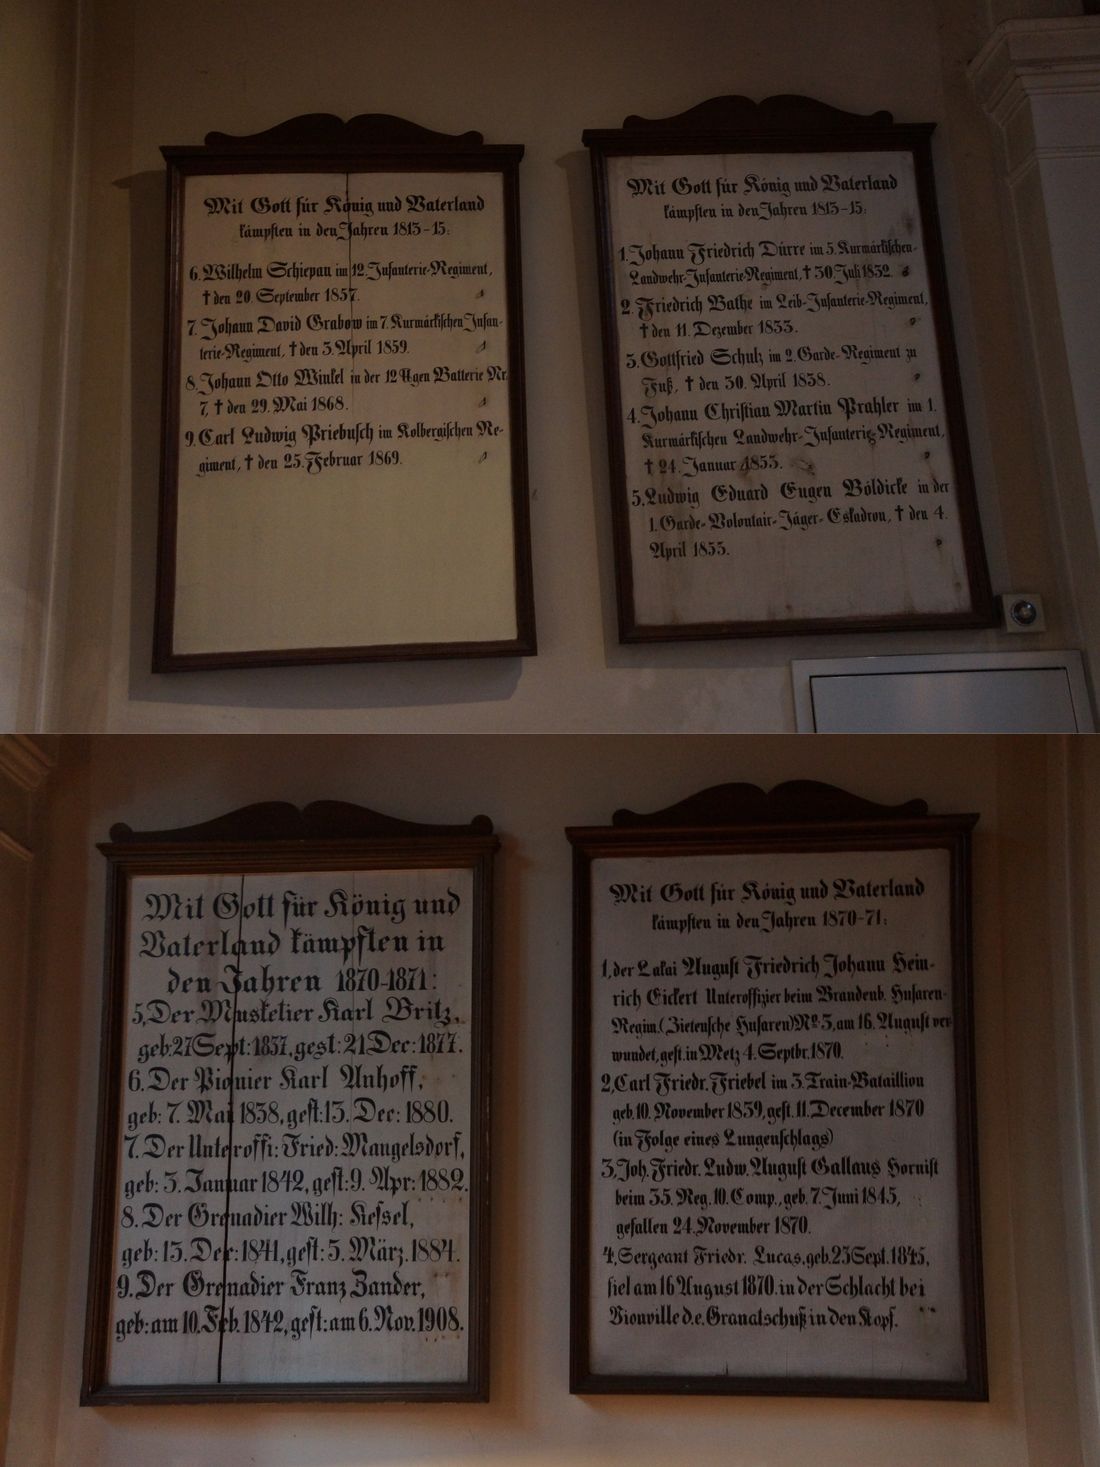 Mit Gott für König und Vaterland
kämpften in den Jahren 1813-15:
6. Wilhelm Schiepan im 12. Infanterie-Regiment,
† den 20. September 1857.
7. Johann David Grabow im 7. Kurmärkischen Infan-
terie-Regiment, † den 3. April 1859.
8. Johann Otto Winkel in der 12 Ugen Batterie Nr.
7, † den 29. Mai 1868.
9. Carl Ludwig Priebusch im Kolbergischen Re-
giment, † den 25. Februar 1869.
Mit Gott für König und Vaterland
kämpften in den Jahren 1813-15:
1. Johann Friedrich Dürre im 5. Kurmärkischen-
Landwehr-Infanterie-Regiment, † 30. Juli 1832.
2. Friedrich Bathe im Leib-Infanterie-Regiment,
† den 11. Dezember 1833.
3. Gottfried Schulz im 2. Garde-Regiment zu
Fuß, † den 30. April 1838.
4. Johann Christian Martin Prahler im 1.
Kurmärkischen Landwehr-Infanterie-Regiment,
† 24. Januar 1853.
5. Ludwig Eduard Eugen Böldicke in der
1. Garde-Volontair-Jäger-Eskadron, † den 4.
April 1855.
Mit Gott für König und
Vaterland kämpften in
den Jahren 1870-1871:
5, Der Musketier Karl Britz,
geb: 27 Sept: 1837, gest: 21 Dec: 1877.
6. Der Pionier Karl Anhoff,
geb: 7. Mai 1838, gest: 13. Dec: 1880.
7. Der Unteroffi: Fried: Mangelsdorf,
geb: 3. Januar 1842, gest: 9. Apr: 1882.
8. Der Grenadier Wilh: Kessel,
geb: 13. Dec: 1841, gest: 5. März. 1884.
9. Der Grenadier Franz Zander,
geb: am 10. Feb. 1842, gest: am 6. Nov. 1908.
Mit Gott für König und Vaterland
kämpften in den Jahren 1870-71:
1, der Lakai August Friedrich Johann Hein-
rich Eickert Unteroffizier beim Brandenb. Husaren-
Regim. (Zietensche Husaren) No. 3, am 16. August ver-
wundet, gest. in Metz 4. Septbr. 1870.
2, Carl Friedr. Friebel im 3. Train-Bataillion
geb. 10. November 1839, gest. 11. December 1870
(in Folge eines Lungenschlags)
3, Joh. Friedr. Ludw. August Gallaus Hornist
beim 35. Reg. 10. Comp., geb. 7. Juni 1845,
gefallen 24. November 1870.
4, Sergeant Friedr. Lucas, geb. 23 Sept. 1845,
fiel am 16 August 1870. in der Schlacht bei
Vionville d. e. Granatschuß in den Kopf.